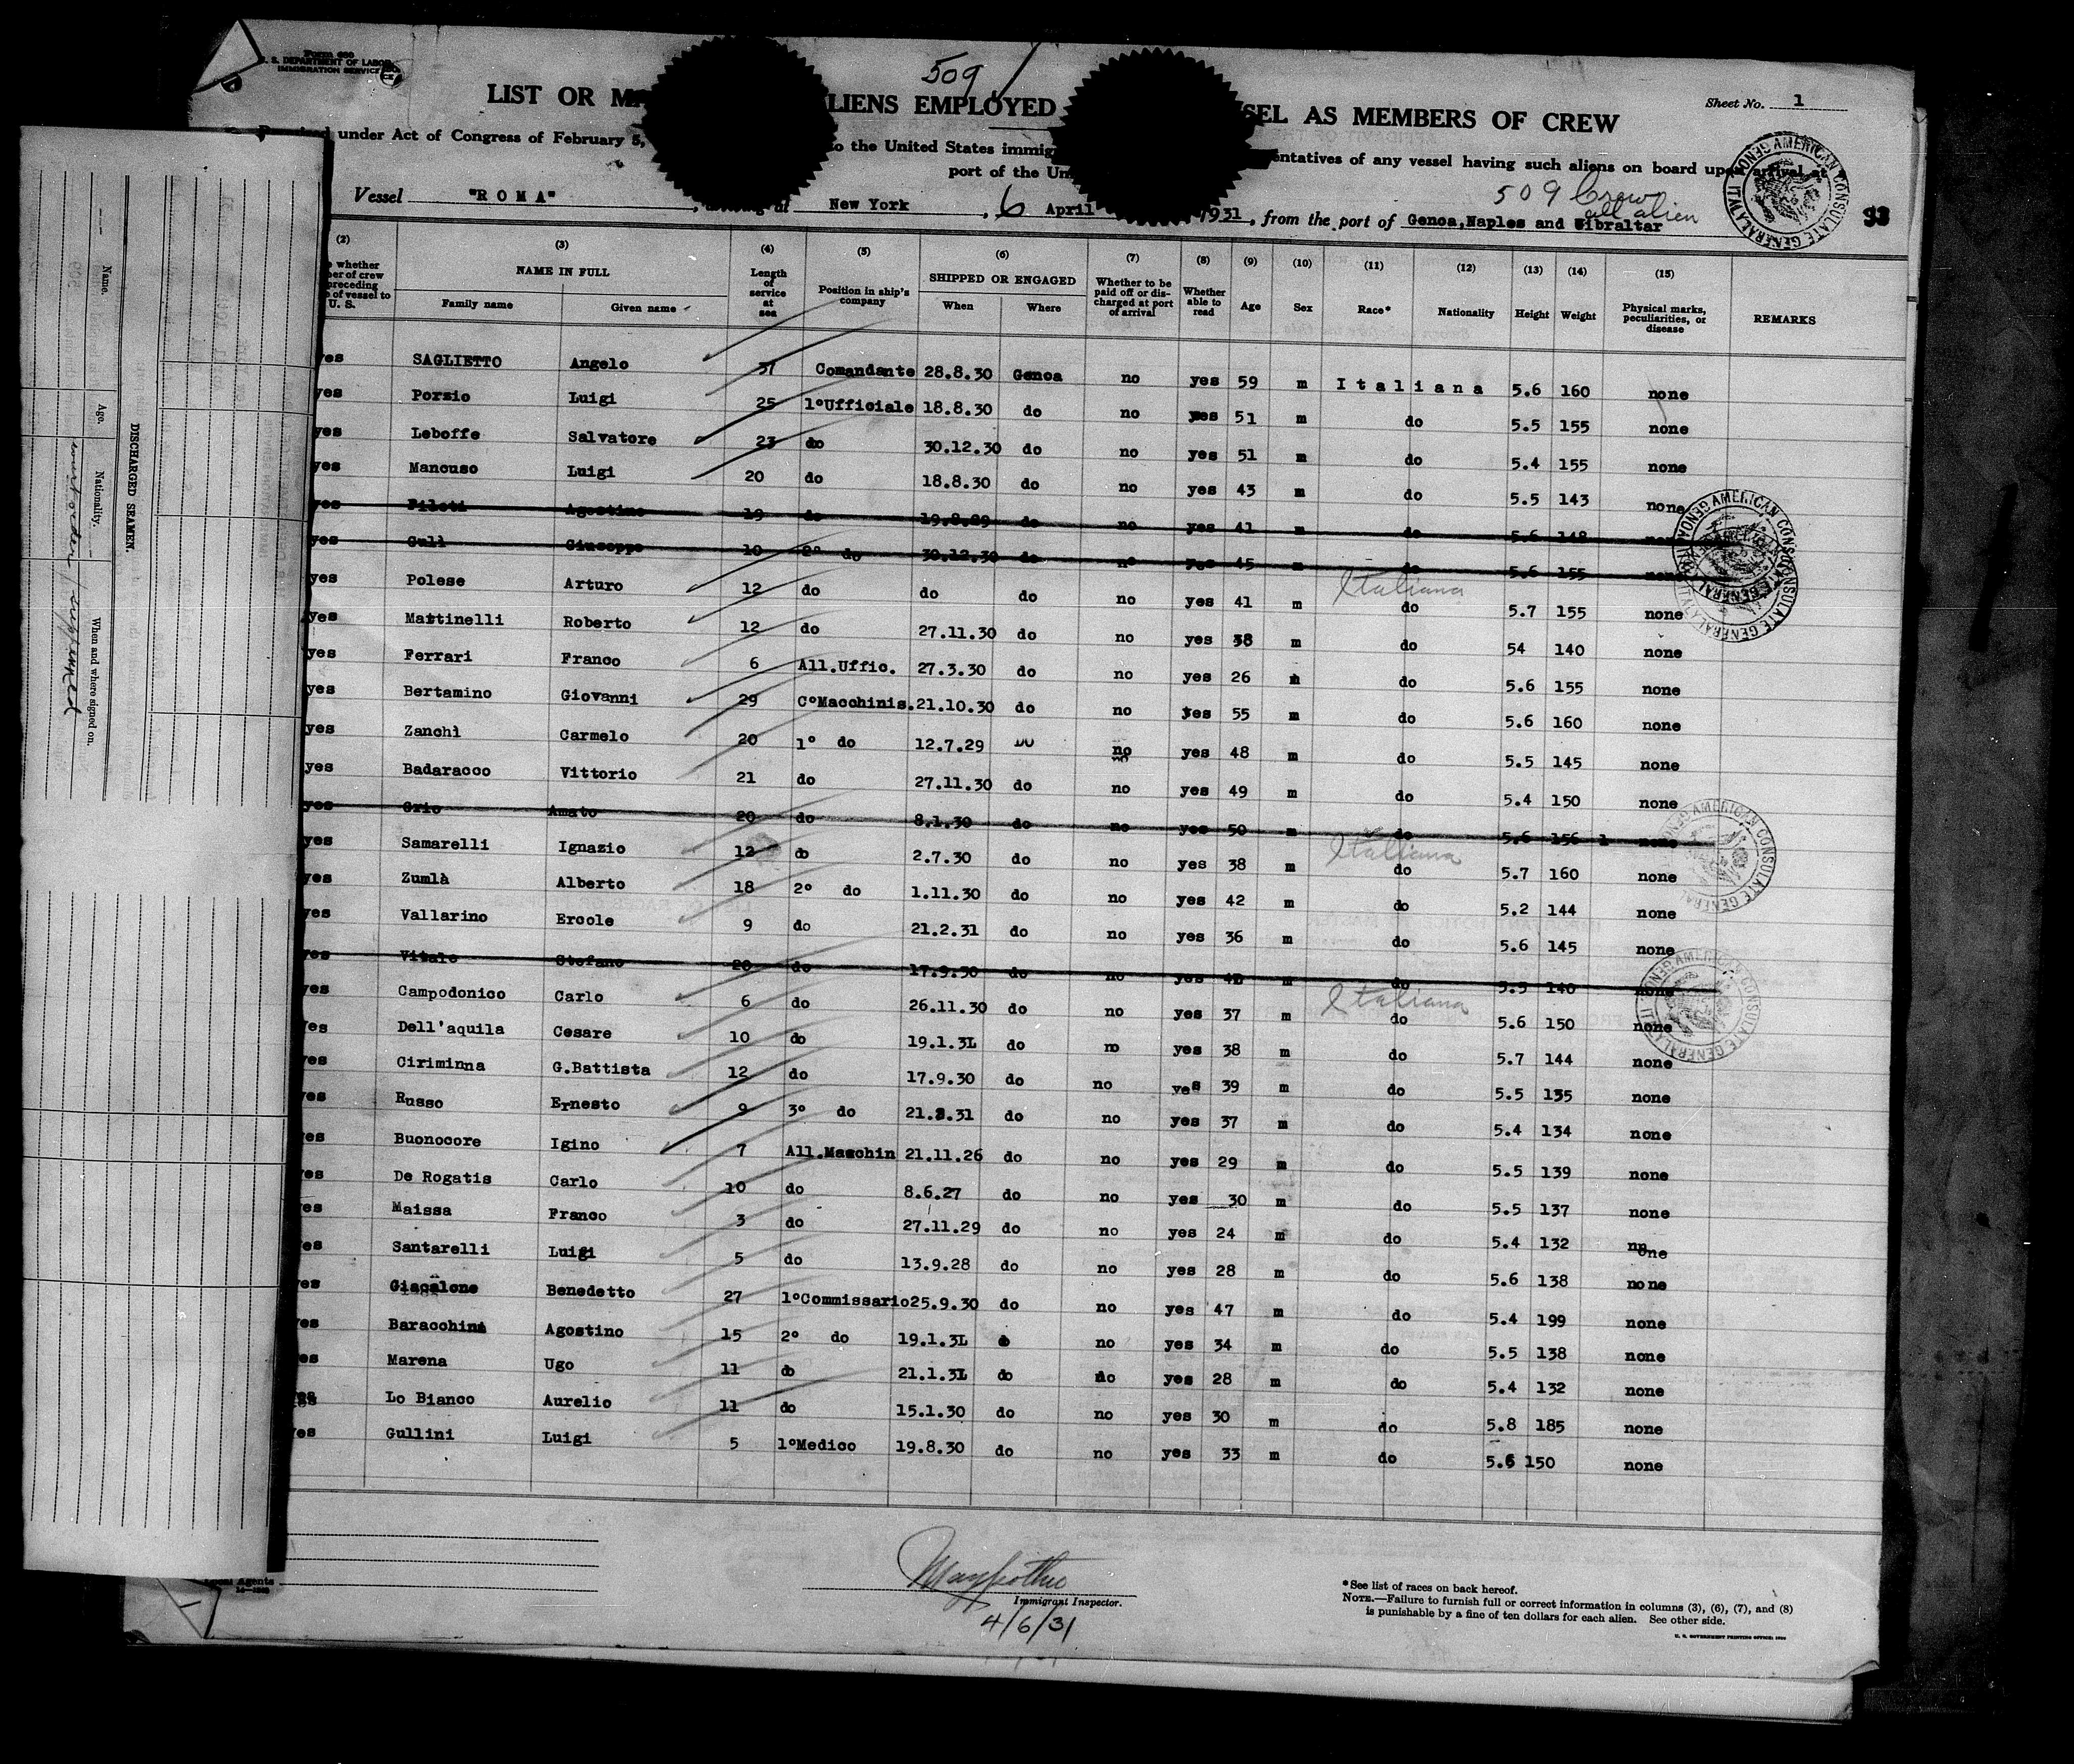 Form 680
U. S. DEPARTMENT OF LABOR
IMMIGRATION SERVICE
509
LIST OR LIENS EMPLOYED SEL AS MEMBERS OF CREW
Sheet No. 1
under Act of Congress of February 5, to the United States immig entatives of any vessel having such aliens on board upon arrival at
port of the Un
509 Crew
all alien
Vessel "ROMA" , at New York , 6 April 1931 , from the port of Genoa,Naples and Gibraltar
93
AMERICAN CONSULATE GENERAL
(2) (3) (4) (5) (6) (7) (8) (9) (10) (11) (12) (13) (14) (15)
whether er of crew preceding of vessel to U. S. NAME IN FULL Family name Given name Length of service at sea Position in ship's company SHIPPED OR ENGAGED When Where Whether to be paid off or discharged at port of arrival Whether able to read Age Sex Race* Nationality Height Weight Physical marks, peculiarities, or disease REMARKS
yes SAGLIETTO Angelo 37 Comandante 28.8.30 Genoa no yes 59 m Italiana 5.6 160 none
yes Porzio Luigi 25 1°Ufficiale 18.8.30 do no yes 51 m do 5.5 155 none
yes Leboffe Salvatore 23 do 30.12.30 do no yes 51 m do 5.4 155 none
yes Mancuso Luigi 20 do 18.8.30 do no yes 43 m do 5.5 143 none
yes Pileti Agostino 19 do 19.8.29 do no yes 41 m do 5.6 148 none
yes Gulì Giuseppe 10 2° do 30.12.30 do no yes 45 m do 5.6 155 none
yes Polese Arturo 12 do do do no yes 41 m Italiana do 5.7 155 none
yes Mattinelli Roberto 12 do 27.11.30 do no yes 38 m do 54 140 none
yes Ferrari Franco 6 All.Uffic. 27.3.30 do no yes 26 m do 5.6 155 none
yes Bertamino Giovanni 29 C°Macchinis. 21.10.30 do no yes 55 m do 5.6 160 none
yes Zanchì Carmelo 20 1° do 12.7.29 DO no yes 48 m do 5.5 145 none
yes Badaracco Vittorio 21 do 27.11.30 do no yes 49 m do 5.4 150 none
yes Grio Amato 20 do 8.1.30 do no yes 50 m do 5.6 156 1 none
yes Samarelli Ignazio 12 do 2.7.30 do no yes 38 m Italiana do 5.7 160 none
yes Zumlà Alberto 18 2° do 1.11.30 do no yes 42 m do 5.2 144 none
yes Vallarino Ercole 9 do 21.2.31 do no yes 36 m do 5.6 145 none
yes Vitale Stefano 20 do 17.9.30 do no yes m do 5.5 140 none
yes Campodonico Carlo 6 do 26.11.30 do no yes 37 m Italiana do 5.6 150 none
yes Dell'aquila Cesare 10 do 19.1.3L do no yes 38 m do 5.7 144 none
yes Ciriminna G.Battista 12 do 17.9.30 do no yes 39 m do 5.5 135 none
yes Russo Ernesto 9 3° do 21.2.31 do no yes 37 m do 5.4 134 none
yes Buonocore Igino 7 All.Macchin 21.11.26 do no yes 29 m do 5.5 139 none
yes De Rogatis Carlo 10 do 8.6.27 do no yes 30 m do 5.5 137 none
yes Maissa Franco 3 do 27.11.29 do no yes 24 m do 5.4 132 none
yes Santarelli Luigi 5 do 13.9.28 do no yes 28 m do 5.6 138 none
yes Giacalone Benedetto 27 1°Commissario 25.9.30 do no yes 47 m do 5.4 199 none
yes Baracchini Agostino 15 2° do 19.1.3L do no yes 34 m do 5.5 138 none
yes Marena Ugo 11 do 21.1.3L do no yes 28 m do 5.4 132 none
yes Lo Bianco Aurelio 11 do 15.1.30 do no yes 30 m do 5.8 185 none
yes Gullini Luigi 5 1°Medico 19.8.30 do no yes 33 m do 5.6 150 none
Immigrant Inspector.
4/6/31
*See list of races on back hereof.
NOTE.—Failure to furnish full or correct information in columns (3), (6), (7), and (8)
is punishable by a fine of ten dollars for each alien. See other side.
U. S. GOVERNMENT PRINTING OFFICE: 1930
DISCHARGED SEAMEN.
Name. Age. Nationality. When and where signed on.
Agents